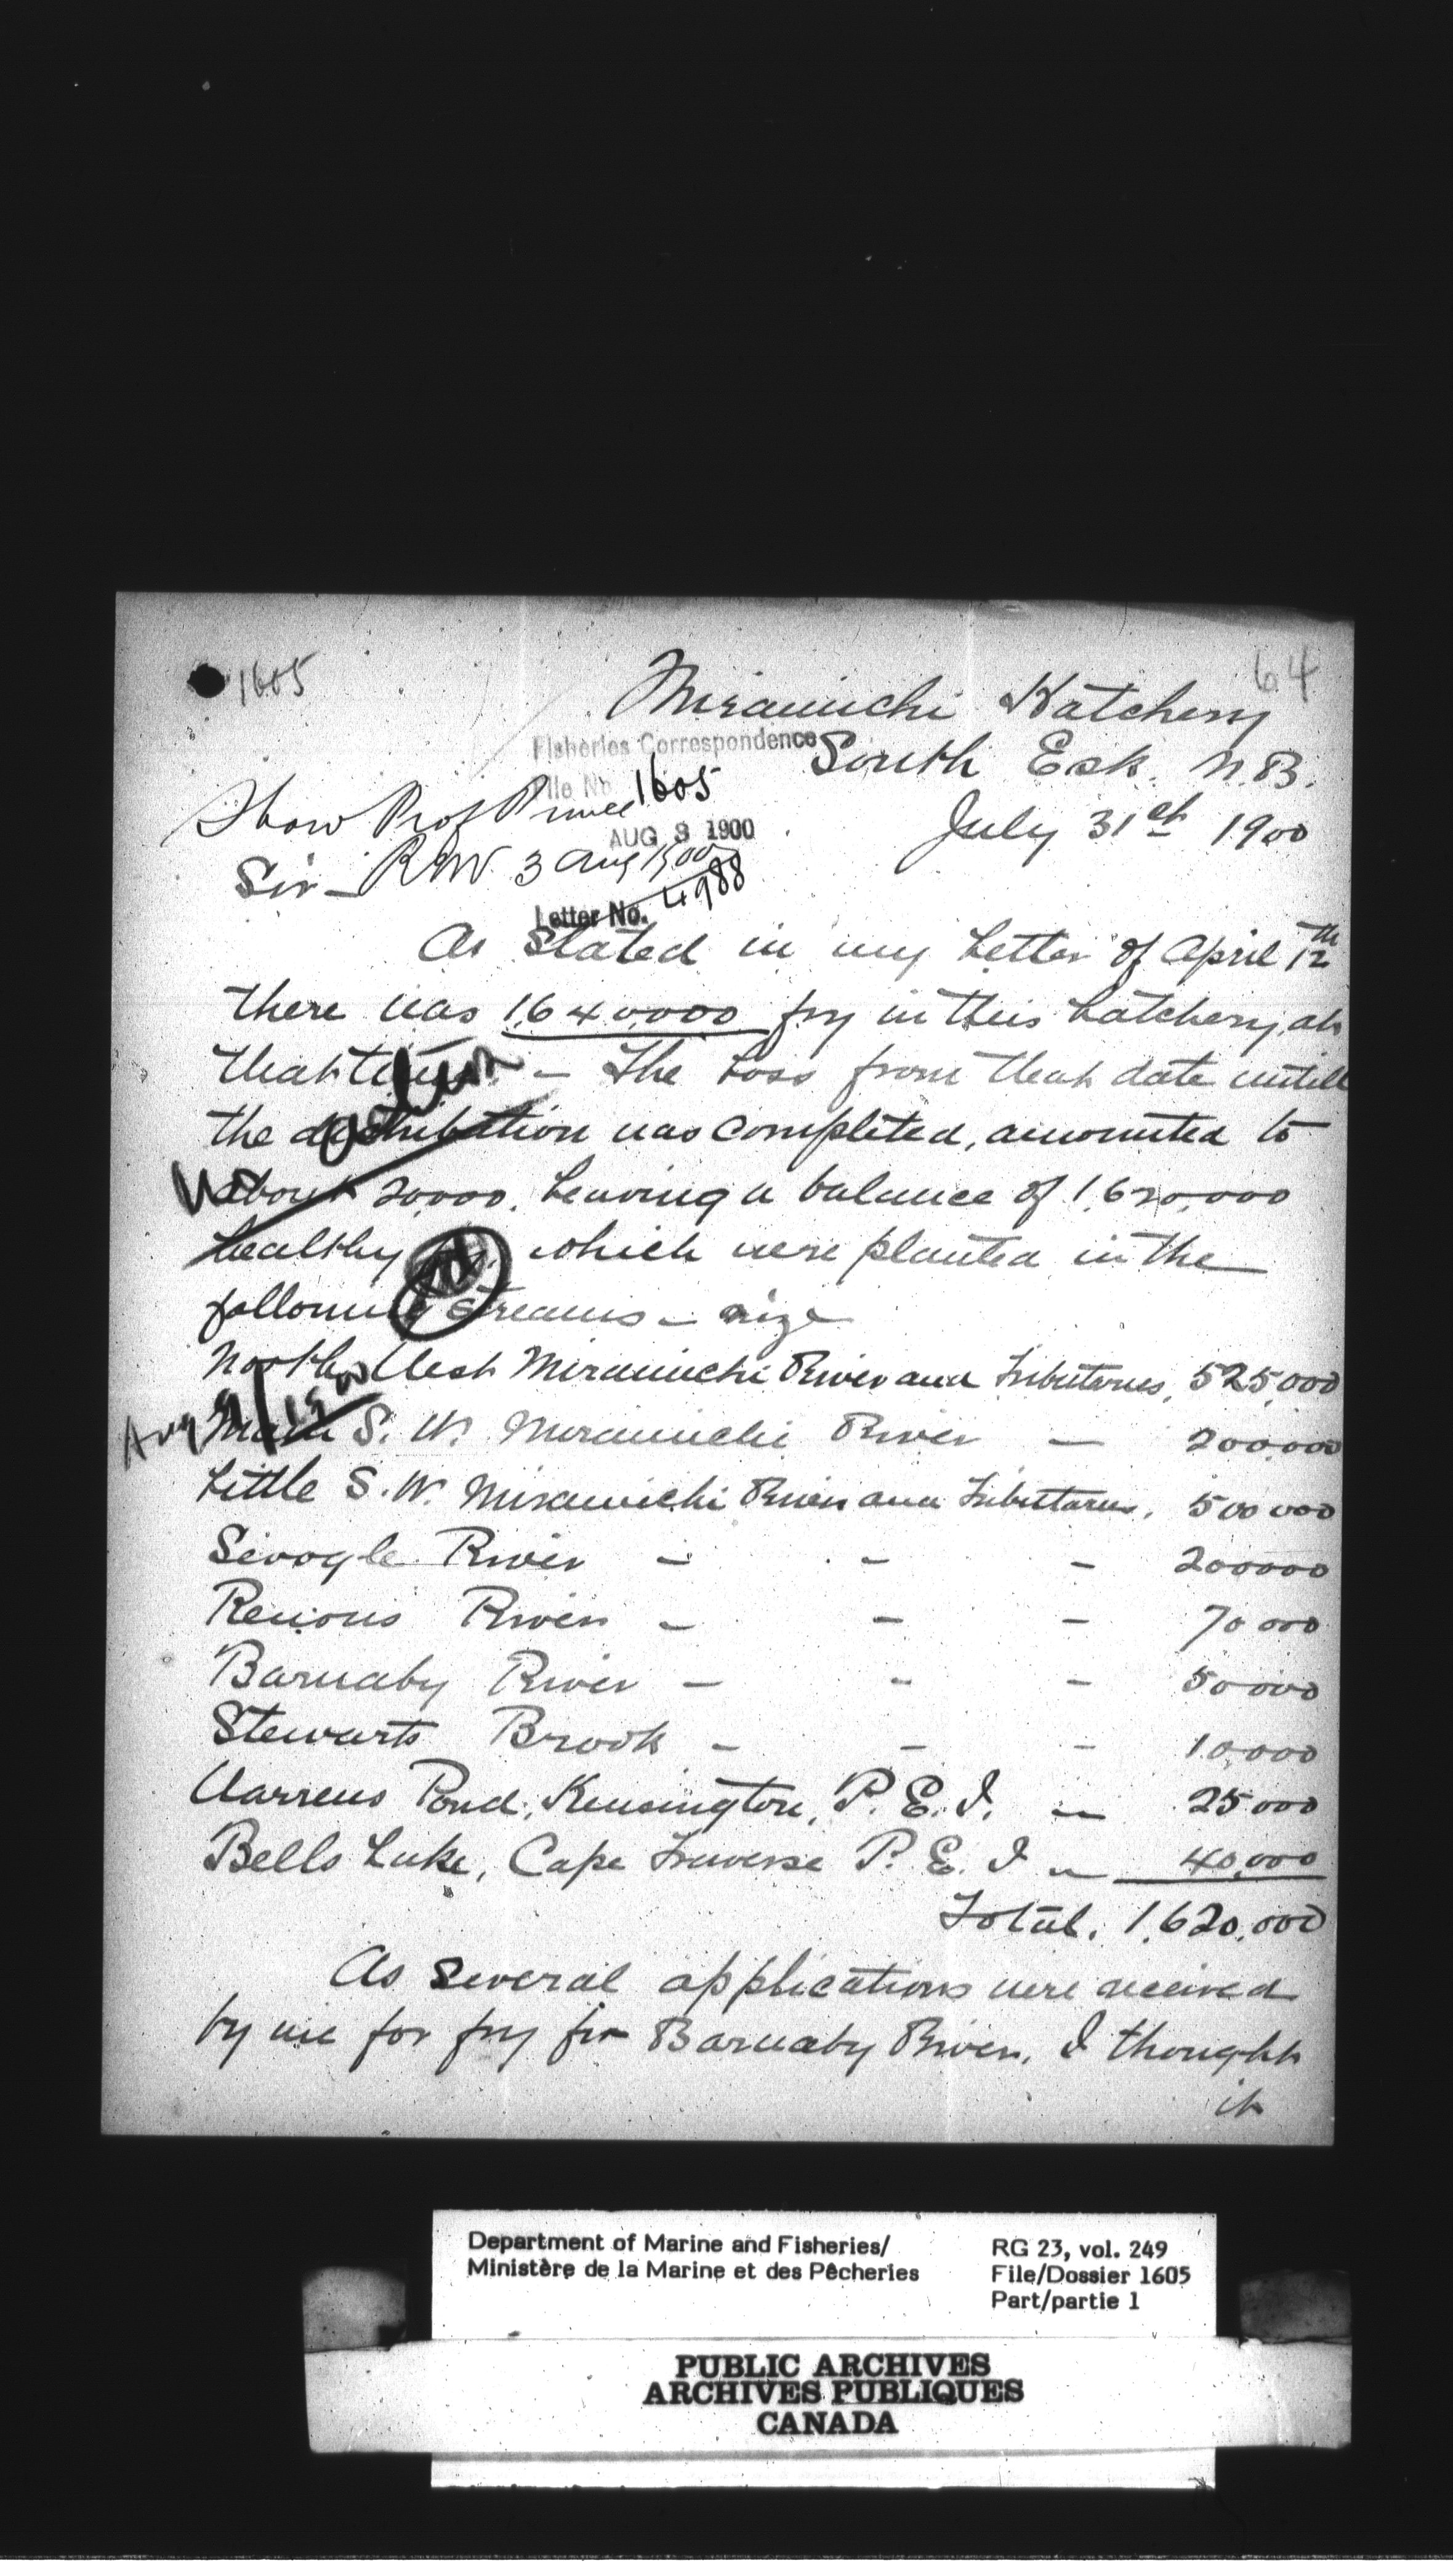 1605
64
Miramichi Hatchery
Fisheries Correspondence
South Esk. N.B.
File No. 1605
Show Prof Prince
AUG 3 1900
July 31st 1900
Sir - RNV. 3 Aug 1900
Letter No. 4988
As Stated in my Letter of April 12th
there was 1640,000 fry in this hatchery, at
that time. - The Loss from that date untill
the distribution was completed, amounted to
about 20,000. Leaving a balance of 1,620,000
healthy fry, which were planted in the
following Streams - vize
North West Miramichi River and Tributaries, 525,000
Aug 9/1900
Main S. W. Miramichi River - 200,000
Little S. W. Miramichi River and Tributaries, 500 000
Sevogle River - - - 200000
Renous River - - - 70 000
Barnaby River - - - 50000
Stewarts Brook - - - 10,000
Warrens Pond, Kensington, P. E. I. - 25 000
Bells Lake, Cape Traverse P. E. I - 40,000
Total. 1,620,000
As Several applications were received
by me for fry for Barnaby River, I thought
it
Department of Marine and Fisheries/
Ministère de la Marine et des Pêcheries
RG 23, vol. 249
File/Dossier 1605
Part/partie 1
PUBLIC ARCHIVES
ARCHIVES PUBLIQUES
CANADA